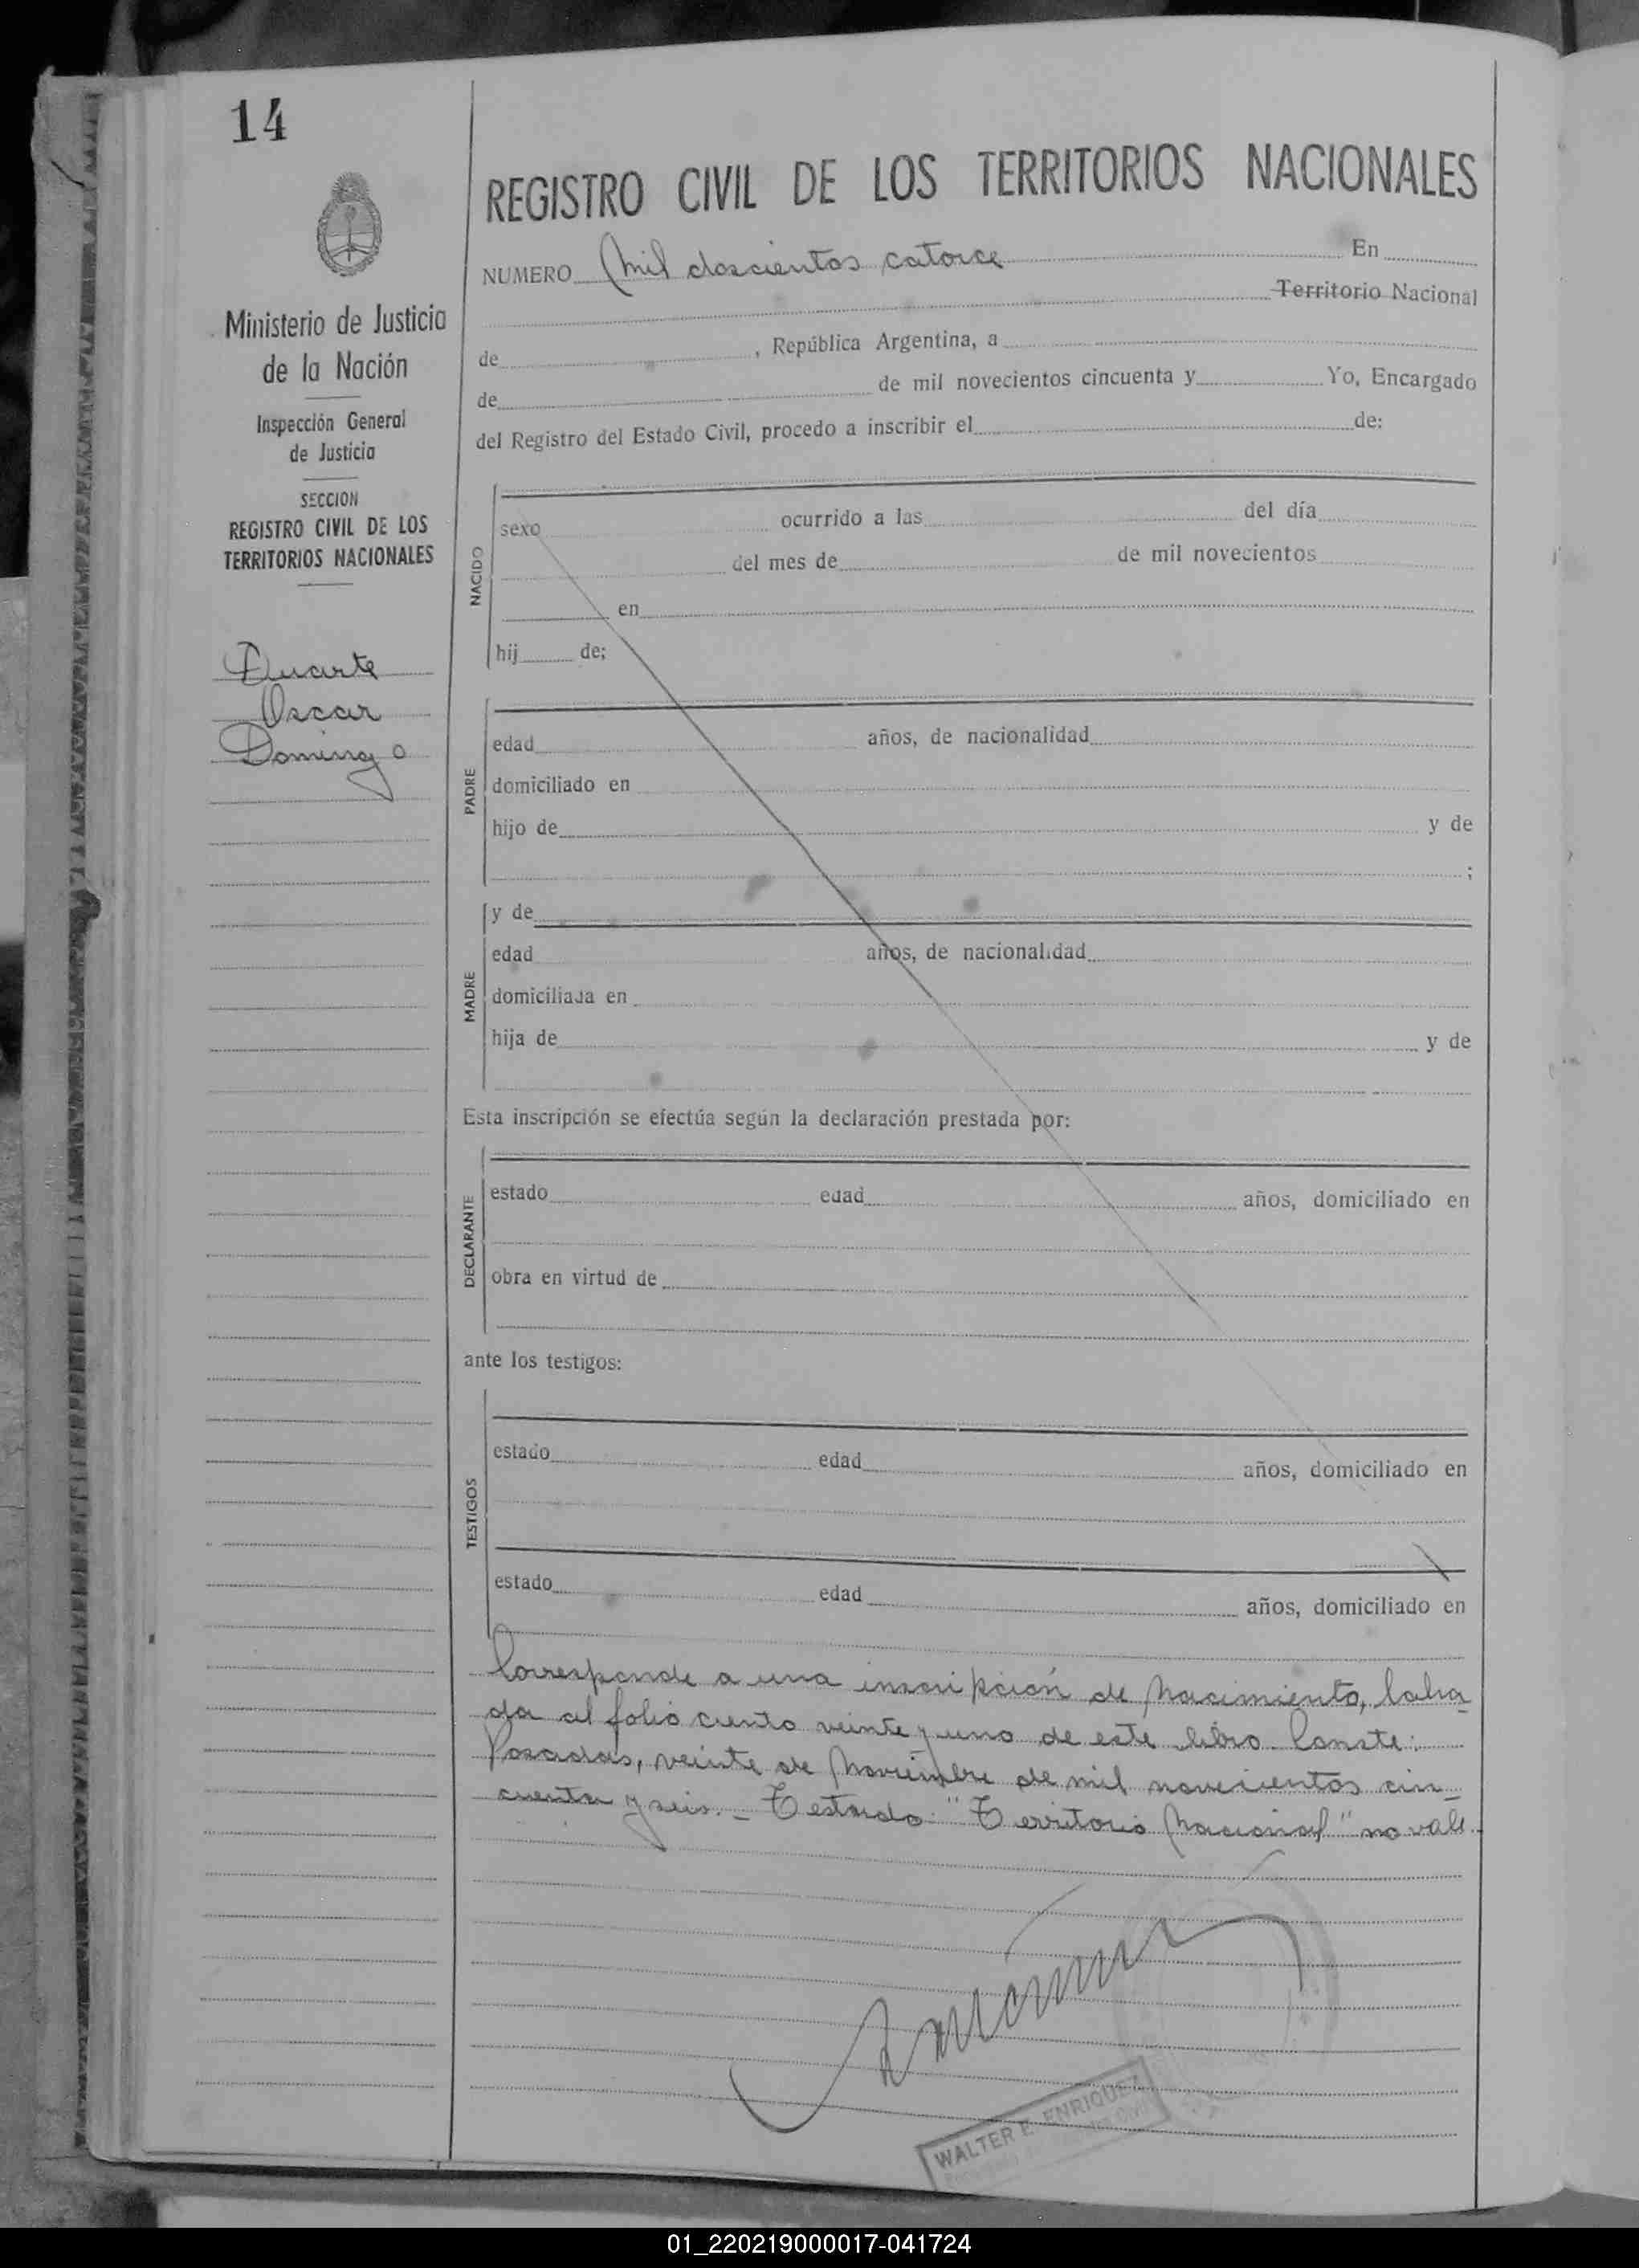 14
Ministerio de Justicia
de la Nación
Inspección General
de Justicia
SECCION
REGISTRO CIVIL DE LOS
TERRITORIOS NACIONALES
Duarte
Oscar
Domingo
REGISTRO CIVIL DE LOS TERRITORIOS NACIONALES
NUMERO Mil doscientos catorce En
Territorio Nacional
de , República Argentina, a
de de mil novecientos cincuenta y Yo, Encargado
del Registro del Estado Civil, procedo a inscribir el de:
NACIDO
sexo ocurrido a las del día
del mes de de mil novecientos
en
hij de;
PADRE
edad años, de nacionalidad
domiciliado en
hijo de y de
;
MADRE
y de
edad años, de nacionalidad
domiciliada en
hija de y de
Esta inscripción se efectúa según la declaración prestada por:
DECLARANTE
estado edad años, domiciliado en
obra en virtud de
ante los testigos:
TESTIGOS
estado edad años, domiciliado en
estado edad años, domiciliado en
Corresponde a una inscripción de Nacimiento, labra-
da al folio ciento veinte y uno de este libro. Conste:
Posadas, veinte de Noviembre de mil novecientos cin-
cuenta y seis. - Testado: "Territorio Nacional" no vale.
WALTER E. ENRIQUEZ
01_220219000017-041724